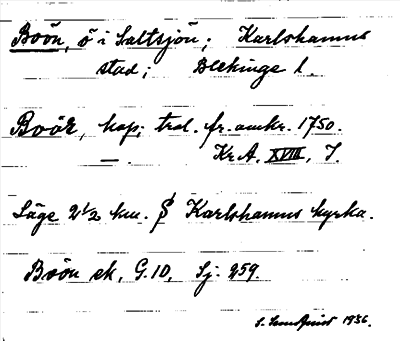 Boön, ö i Saltsjön; Karlshamns
stad; Blekinge l.
Boök, kap; trol. fr. omkr. 1750.
— . Kr.A. XVIII, 7.
Läge 2 1/2 km. S Karlshamns kyrka.
Boön ek, G. 10, Sj. 259.
S. 1936.